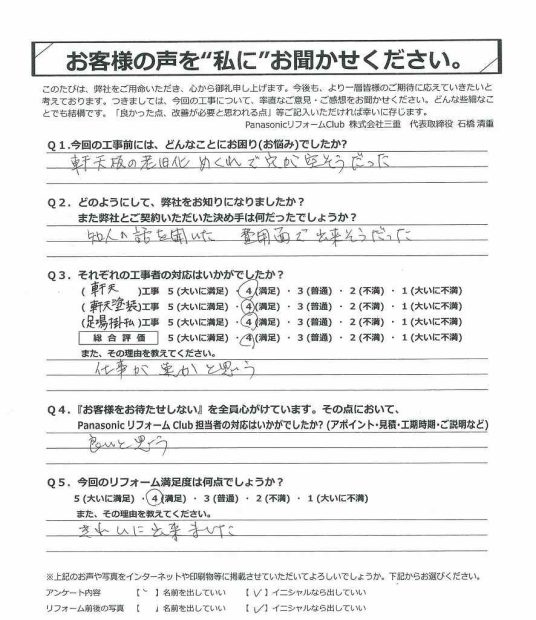 お客様の声を“私に”お聞かせください。
このたびは、弊社をご用命いただき、心から御礼申し上げます。今後も、より一層皆様のご期待に応えていきたいと
考えております。つきましては、今回の工事について、率直なご意見・ご感想をお聞かせください。どんな些細なこ
とでも結構です。「良かった点、改善が必要と思われる点」等ご記入いただければ幸いに存じます。
PanasonicリフォームClub 株式会社三重 代表取締役 石橋 清重
Q1.今回の工事前には、どんなことにお困り(お悩み)でしたか?
軒天版の老旧化 めくれで穴が空そうだった
Q2．どのようにして、弊社をお知りになりましたか?
また弊社とご契約いただいた決め手は何だったでしょうか?
知人の話を聞いた 費用面で出来そうだった
Q3．それぞれの工事者の対応はいかがでしたか?
(軒天)工事 5(大いに満足)・4(満足)・3(普通)・2(不満)・1(大いに不満)
(軒天塗装)工事 5(大いに満足)・4(満足)・3(普通)・2(不満)・1(大いに不満)
(足場掛払)工事 5(大いに満足)・4(満足)・3(普通)・2(不満)・1(大いに不満)
総合評価 5(大いに満足)・4(満足)・3(普通)・2(不満)・1(大いに不満)
また、その理由を教えてください。
仕事が と思う
Q4．『お客様をお待たせしない』を全員心がけています。その点において、
Panasonic リフォーム Club 担当者の対応はいかがでしたか?(アポイント・見積・工期時期・ご説明など)
良いと思う
Q5．今回のリフォーム満足度は何点でしょうか?
5(大いに満足)・4(満足)・3(普通)・2(不満)・1(大いに不満)
また、その理由を教えてください。
きれいに出来ました
※上記のお声や写真をインターネットや印刷物等に掲載させていただいてよろしいでしょうか。下記からお選びください。
アンケート内容 【 】名前を出していい 【✓】イニシャルなら出していい
リフォーム前後の写真 【 】名前を出していい 【✓】イニシャルなら出していい